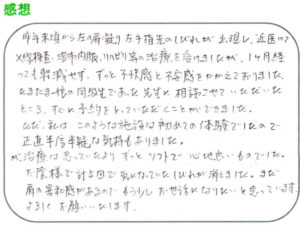 感想
昨年末頃から左の肩凝り左手指先のしびれが出現し、近医にて
X線検査、湿布内服、リハビリ等の治療を受けましたが、1ヶ月経
っても軽減せず、ずっと不快感と不安感をかかえておりました。
たまたま娘の同級生であった先生に相談させていただいた
ところ、すぐに予約をとっていただくことができました。
ただ、私はこのような施設は初めての体験でしたので
正直半信半疑な気持もありました。
が、治療は思っていたよりずっとソフトで心地よいものでした。
お陰様で計5回で気になっていたしびれが消えました。まだ
肩の違和感があるのでもう少しお世話になりたいと思っています。
よろしくお願いいたします。